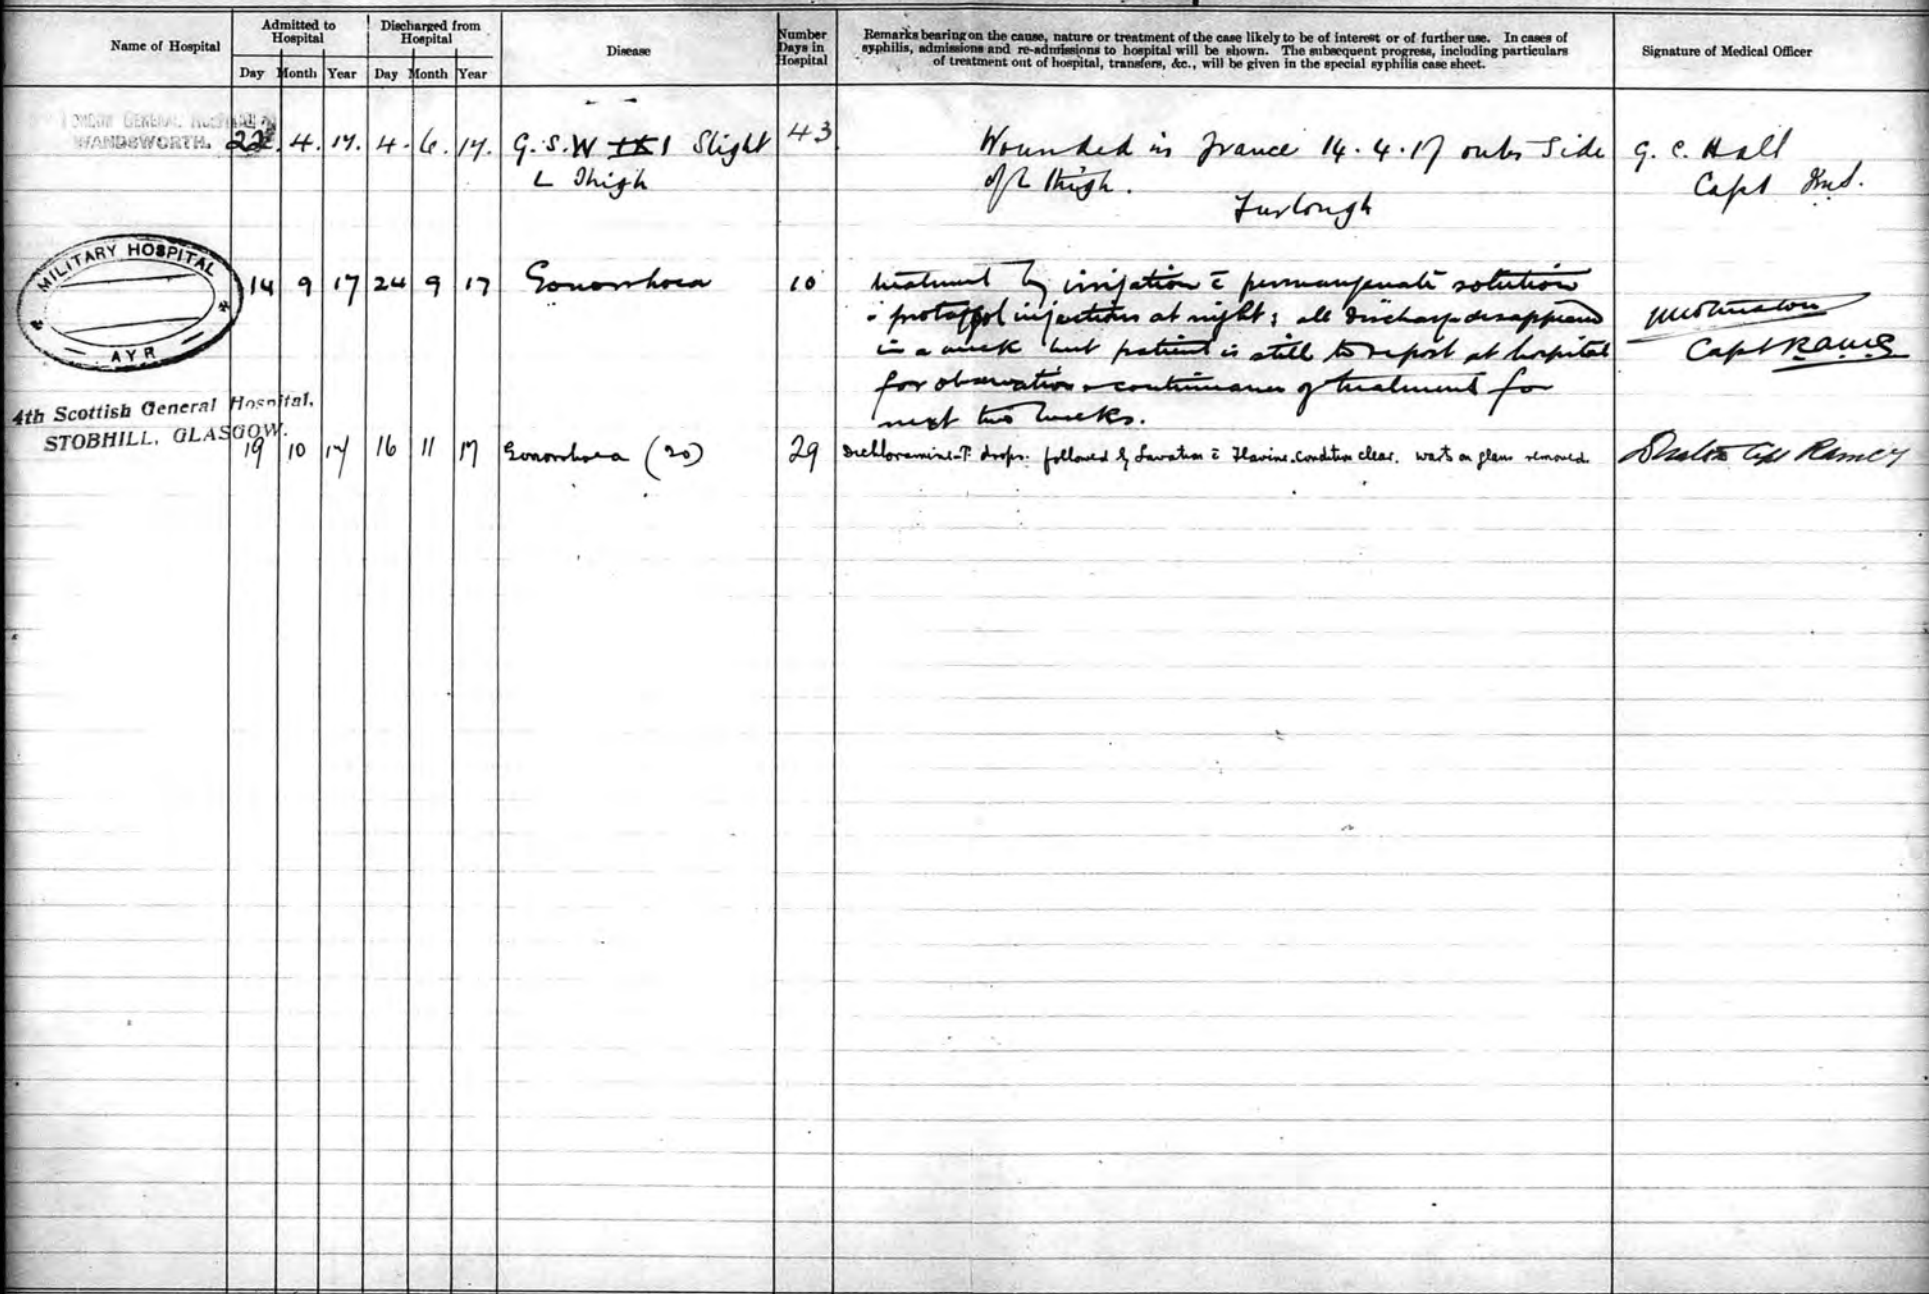 Name of Hospital
Admitted to Hospital
Discharged from Hospital
Disease
Number Days in Hospital
Remarks bearing on the cause, nature or treatment of the case likely to be of interest or of further use. In cases of
syphilis, admissions and re-admissions to hospital will be shown. The subsequent progress, including particulars
of treatment out of hospital, transfers, &c., will be given in the special syphilis case sheet.
Signature of Medical Officer
Day Month Year Day Month Year
GENERAL HOSPITAL
WANDSWORTH. 22. 4. 17. 4. 6. 17. G.S.W I Slight 43 Wounded in France 14.4.17 outer Side G. C. Hall
L Thigh of L thigh. Capt
Furlough
MILITARY HOSPITAL
AYR
14 9 17 24 9 17 Gonorrhoea 10 treatment by irrigation c̄ permanganate solution
protargol injections at night; all discharge disappeared
in a week but patient is still to report at hospital Capt RAMC
for observation & continuance of treatment for
next two weeks.
4th Scottish General Hospital,
STOBHILL, GLASGOW.
19 10 17 16 11 17 Gonorrhoea (20) 29 Dichloramine-T drops. followed by Lavation c̄ Flavine. Condition clear. warts on glans removed. Capt RAMC